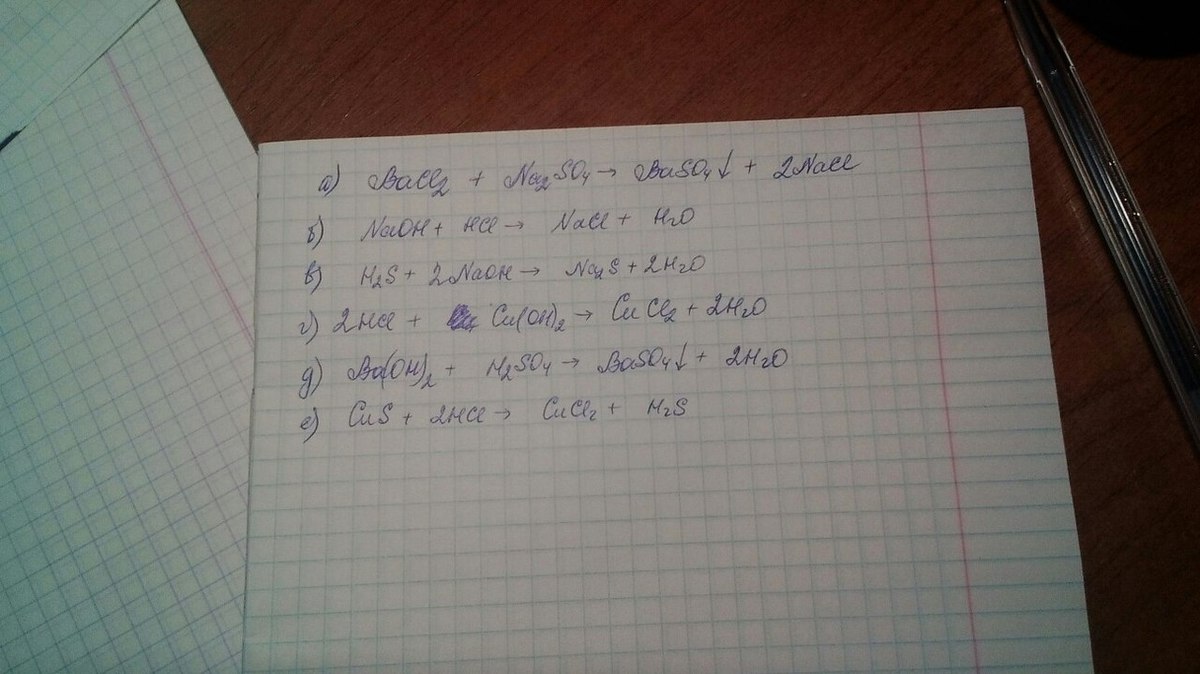 а) BaCl₂ + Na₂SO₄ → BaSO₄↓ + 2NaCl
б) NaOH + HCl → NaCl + H₂O
в) H₂S + 2NaOH → Na₂S + 2H₂O
г) 2HCl + Cu(OH)₂ → CuCl₂ + 2H₂O
д) Ba(OH)₂ + H₂SO₄ → BaSO₄↓ + 2H₂O
е) CuS + 2HCl → CuCl₂ + H₂S